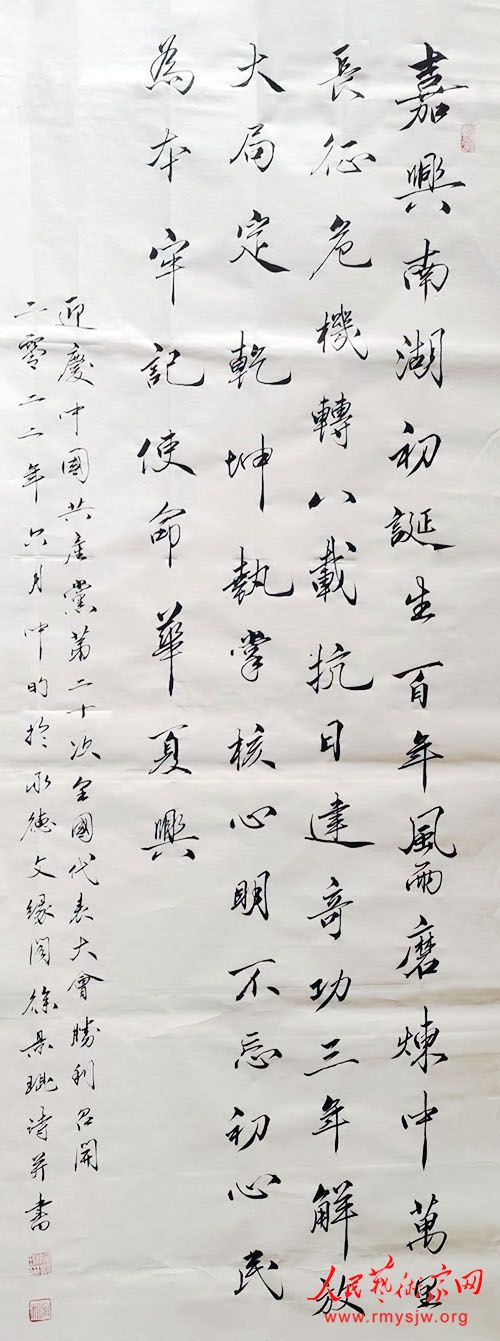 嘉興南湖初誕生百年風雨磨煉中萬里
長征危機轉八載抗日建奇功三年解放
大局定乾坤執掌核心明不忘初心民
為本牢記使命華夏興
迎慶中國共產黨第二十次全國代表大會勝利召開
二零二二年六月中旬於承德文緣閣徐景琨詩并書
人民藝術家网
www.rmysjw.org